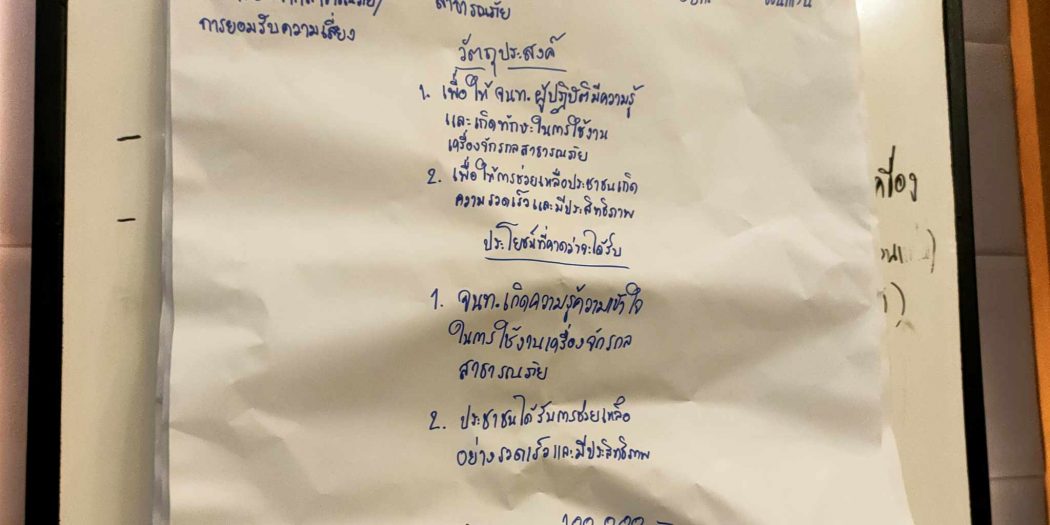 สาธารณภัย
การยอมรับความเสี่ยง
วัตถุประสงค์
1. เพื่อให้ จนท. ผู้ปฏิบัติมีความรู้
และเกิดทักษะในการใช้งาน
เครื่องจักรกลสาธารณภัย
2. เพื่อให้การช่วยเหลือประชาชนเกิด
ความรวดเร็วและมีประสิทธิภาพ
ประโยชน์ที่คาดว่าจะได้รับ
1. จนท. เกิดความรู้ความเข้าใจ
ในการใช้งานเครื่องจักรกล
สาธารณภัย
2. ประชาชนได้รับการช่วยเหลือ
อย่างรวดเร็วและมีประสิทธิภาพ